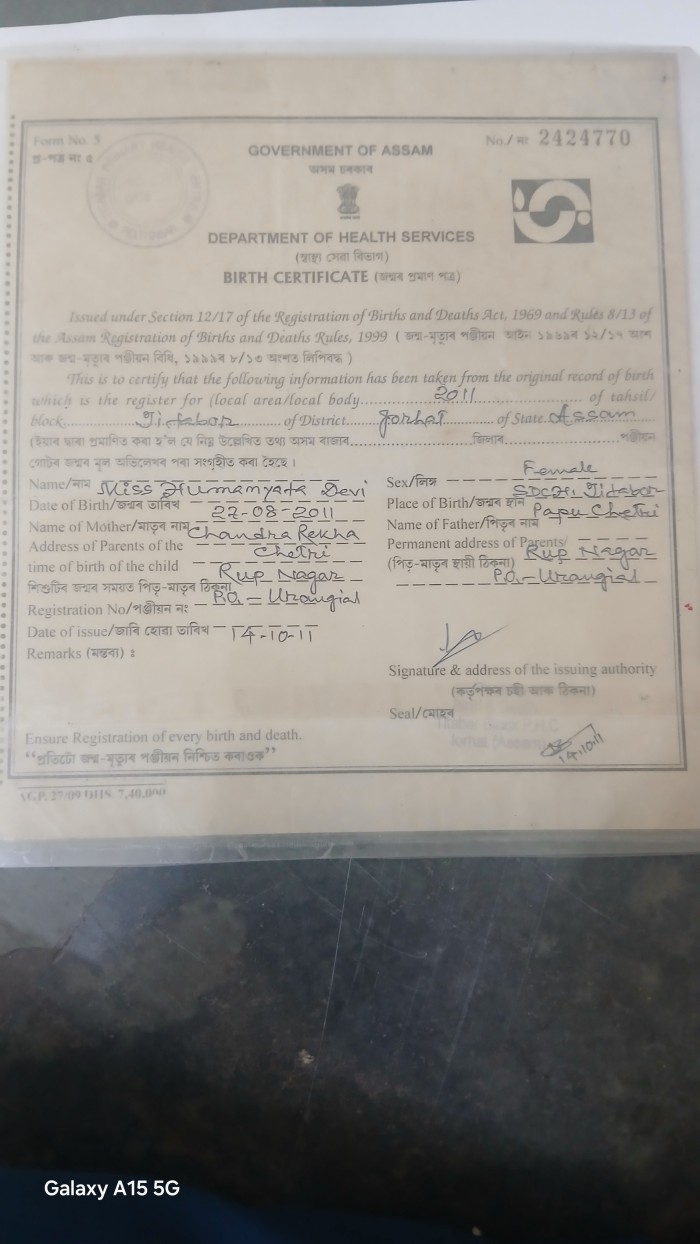 Form No. 5
প্র-পত্ৰ নং ৫
No./ নং 2424770
GOVERNMENT OF ASSAM
অসম চৰকাৰ
DEPARTMENT OF HEALTH SERVICES
(স্বাস্থ্য সেৱা বিভাগ)
BIRTH CERTIFICATE (জন্মৰ প্ৰমাণ পত্ৰ)
Issued under Section 12/17 of the Registration of Births and Deaths Act, 1969 and Rules 8/13 of
the Assam Registration of Births and Deaths Rules, 1999 ( জন্ম-মৃত্যুৰ পঞ্জীয়ন আইন ১৯৬৯ৰ ১২/১৭ আৰু
জন্ম-মৃত্যুৰ পঞ্জীয়ন বিধি, ১৯৯৯ৰ ৮/১৩ অংশত লিপিবদ্ধ )
This is to certify that the following information has been taken from the original record of birth
which is the register for (local area/local body 2011 of tahsil/
block Titabor of District Jorhat of State Assam
(ইয়াৰ দ্বাৰা প্ৰমাণিত কৰা হ'ল যে নিম্ন উল্লেখিত তথ্য অসম ৰাজ্যৰ জিলাৰ পঞ্জীয়ন
জন্মৰ মূল অভিলেখৰ পৰা সংগৃহীত কৰা হৈছে।
Name/নাম Miss Devi
Sex/লিঙ্গ Female
Date of Birth/জন্মৰ তাৰিখ 27-08-2011
Place of Birth/জন্মৰ স্থান Titabor
Name of Mother/মাতৃৰ নাম Chandra Rekha Chetri
Name of Father/পিতৃৰ নাম Papu Chetri
Address of Parents of the
time of birth of the child Rup Nagar
শিশুটিৰ জন্মৰ সময়ত পিতৃ-মাতৃৰ ঠিকনা P.O.- Urangial
Permanent address of Parents/ Rup Nagar
(পিতৃ-মাতৃৰ স্থায়ী ঠিকনা) P.O-Urangial
Registration No/পঞ্জীয়ন নং
Date of issue/জাৰি হোৱা তাৰিখ 14-10-11
Remarks (মন্তব্য) :
Signature & address of the issuing authority
(কৰ্তৃপক্ষৰ চহী আৰু ঠিকনা)
Seal/মোহৰ
14.10.11
Ensure Registration of every birth and death.
“প্ৰতিটো জন্ম-মৃত্যুৰ পঞ্জীয়ন নিশ্চিত কৰাওক”
A.G.P. 27/09 DHS. 7,40,000
Galaxy A15 5G